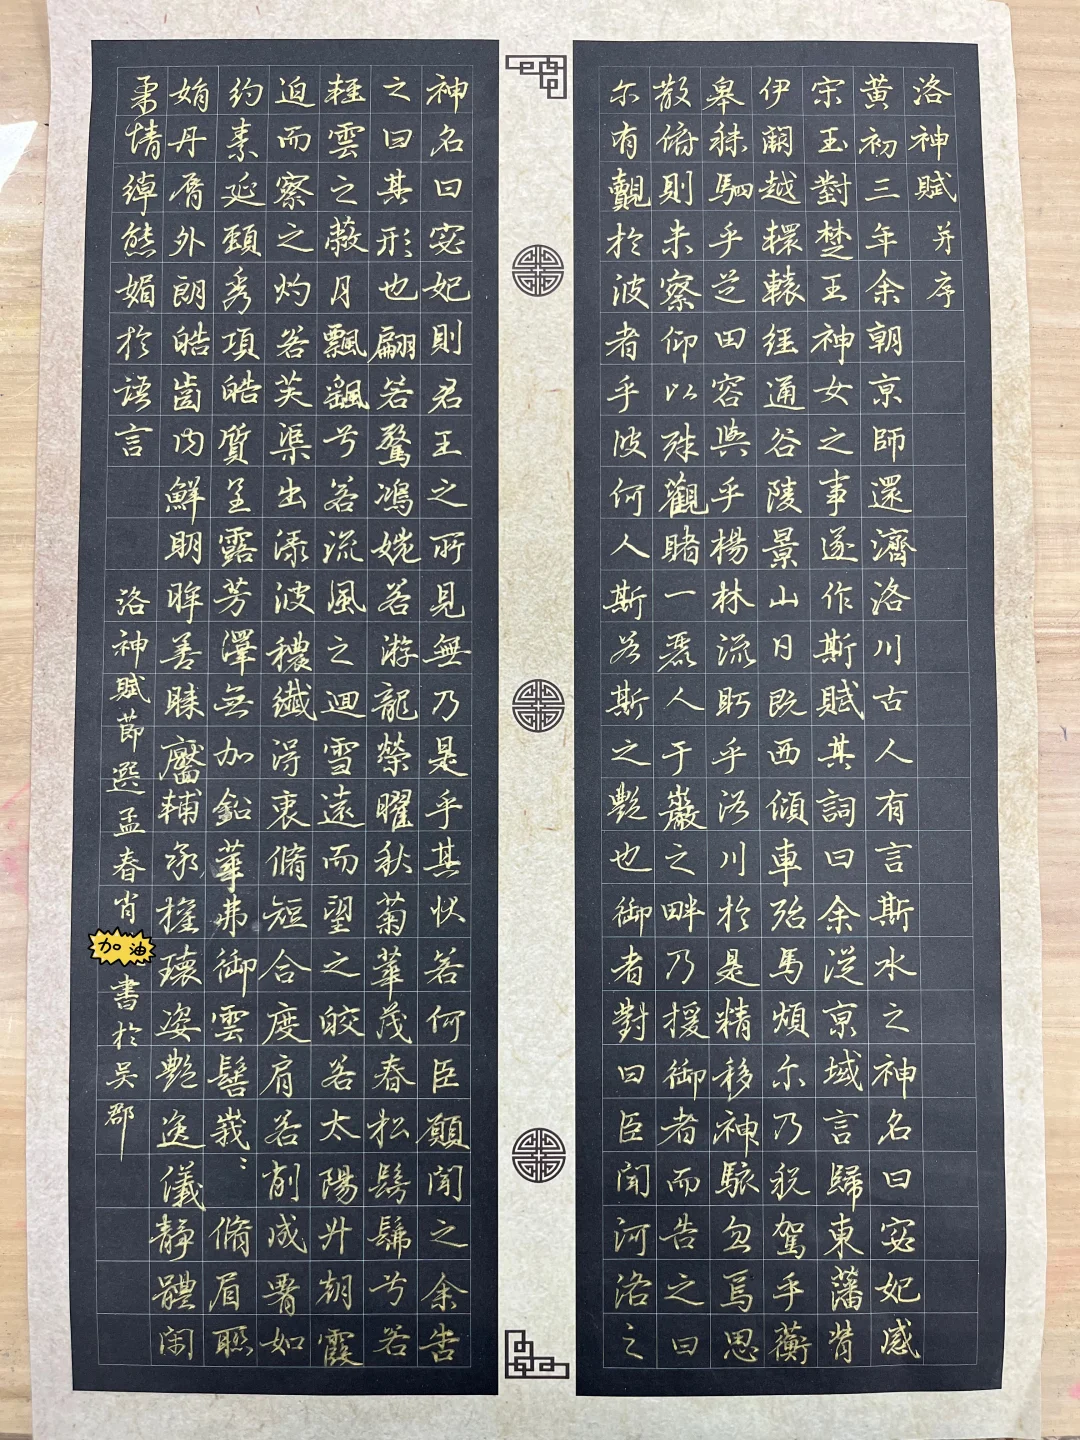 洛神賦并序
黃初三年余朝京師還濟洛川古人有言斯水之神名曰宓妃感
宋玉對楚王神女之事遂作斯賦其詞曰余從京域言歸東藩背
伊闕越轘轅經通谷陵景山日既西傾車殆馬煩尔乃税駕乎蘅
皋秣駟乎芝田容與乎楊林流眄乎洛川於是精移神駭忽焉思
散俯則未察仰以殊觀睹一麗人于巖之畔乃援御者而告之曰
尔有覿於彼者乎彼何人斯若斯之艷也御者對曰臣聞河洛之
神名曰宓妃則君王之所見無乃是乎其狀若何臣願聞之余告
之曰其形也翩若驚鴻婉若游龍榮曜秋菊華茂春松髣髴兮若
輕雲之蔽月飄飖兮若流風之迴雪遠而望之皎若太陽升朝霞
迫而察之灼若芙渠出淥波穠纖得衷脩短合度肩若削成腰如
約素延頸秀項皓質呈露芳澤无加鉛華弗御雲髻峩:脩眉聯
娟丹脣外朗皓齒内鮮明眸善睞靨輔承權瓌姿艷逸儀靜體閑
柔情綽態媚於語言
洛神賦節選孟春肖
加油
書於吳郡